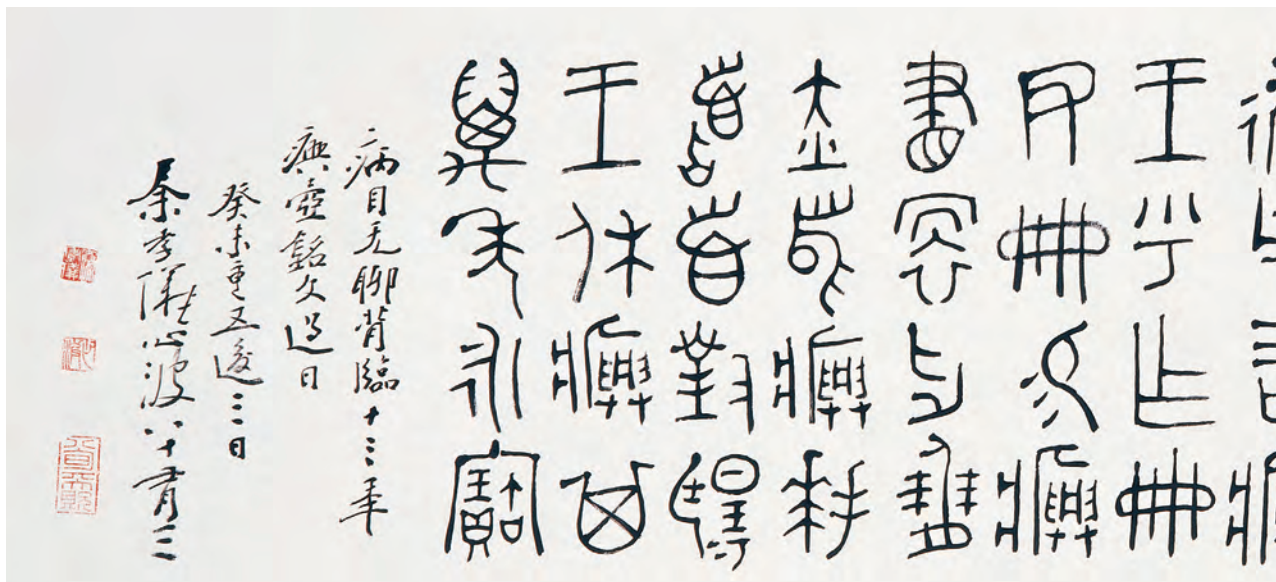 王乎乍冊
尹冊易𤼈
畫牙僰
赤舄𤼈拜
稽首對揚
王休𤼈其
萬年永寶
病目无聊背臨十三年
𤼈壺銘文過日
癸未重五後三日
秦孝儀心波八十有三